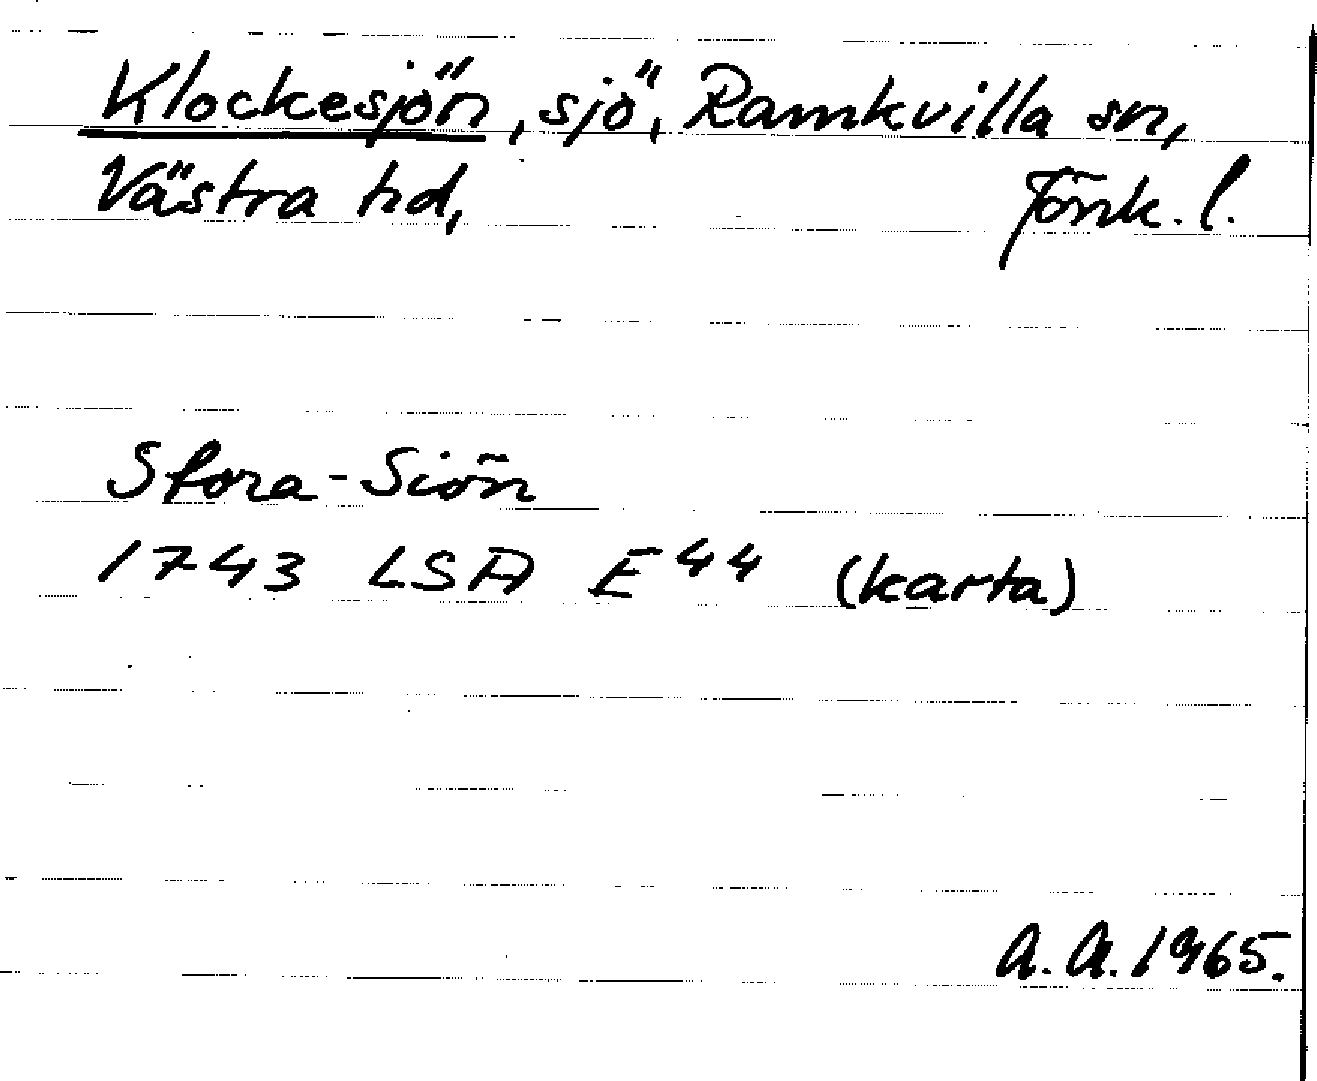 Klockesjön, sjö, Ramkvilla sn,
Västra hd, Jönk. l.
Stora-Siön
1743 LSA E 44 (karta)
A.A. 1965.